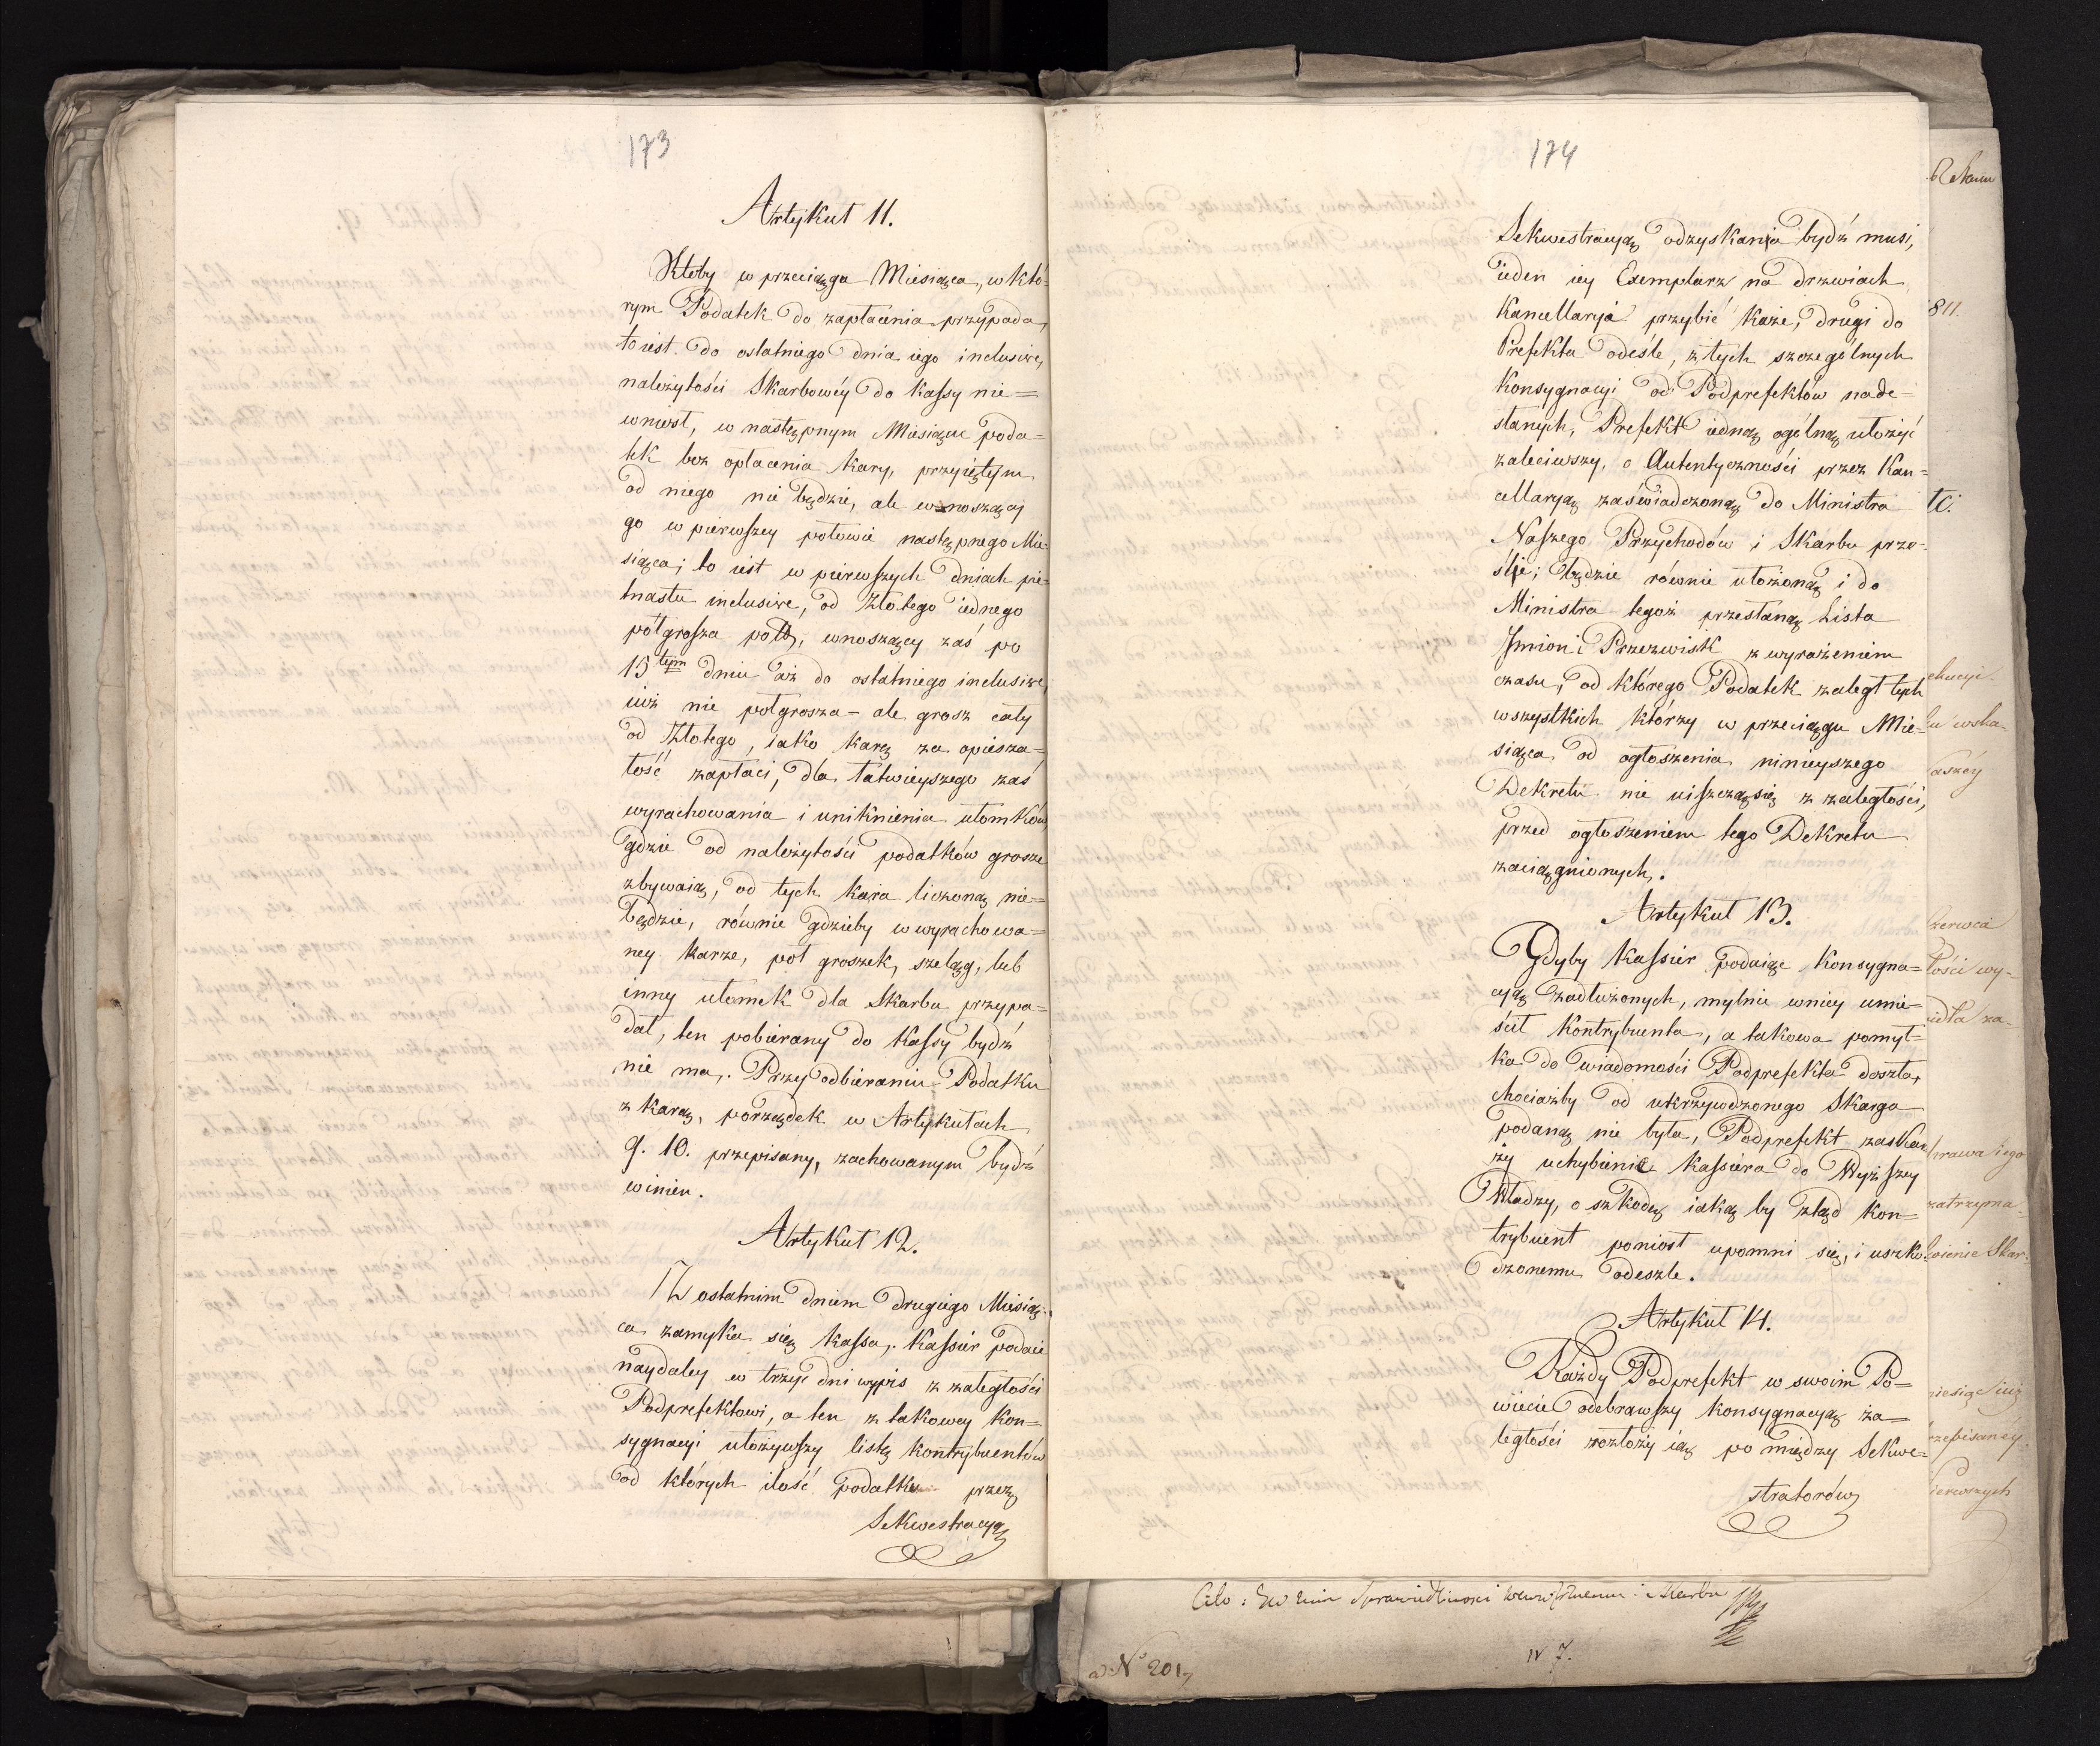 173
Artykuł 11.
Ktoby w przeciągu Miesiąca, w któ=
rym Podatek do zapłacenia przypada,
to iest do ostatniego dnia iego inclusive,
należytości Skarbowéy do Kassy nie=
wniosł, w następnym Miesiącu poda=
tek bez opłacenia kary, przyiętym
od niego nie będzie, ale wnoszący
go w pierwszey połowie następnego Mie=
siąca, to iest w pierwszych dniach pię=
tnastu inclusive, od Złotego iednego
półgrosza, wnoszący zaś po
15tym dniu aż do ostatniego inclusive,
iuż nie półgrosza - ale grosz cały
od Złotego, iako karę za opiesza=
łość zapłaci, dla łatwieyszego zaś
wyrachowania i uniknienia ułomków
gdzie od należytości podatków grosze
zbywaią, od tych kara liczoną nie=
będzie, równie gdzieby w wyrachowa=
ney karze, pół groszek, szeląg, lub
inny ułomek dla Skarbu przypa=
dał, ten pobierany do Kassy bydź
nie ma. Przy odbieraniu Podatku
z karą, porządek w Artykułach
9. 10. przepisany, zachowanym bydź
winien.
Artykuł 12.
Z ostatnim dniem drugiego Miesią=
ca zamyka się Kassa. Kassier podaie
naydaley w trzy dni wypis z zaległości
Podprefektowi, a ten z takowey Kon=
sygnacyi ułożywszy listę kontrybuentów
od których ilość podatku przez
Sekwestracyą
174
Sekwestracyą odzyskania bydź musi,
ieden iey Exemplarz na drzwiach
Kancellaryi przybić każe, drugi do
Prefekta odeśle, z tych szczególnych
Konsygnacyi od Podprefektów nade=
słanych, Prefekt iedną ogólną ułożyć
zaleciwszy, o Autentyczności przez Kan=
cellaryą zaświadczoną do Ministra
Naszego Przychodów i Skarbu prze=
śle; będzie równie ułożoną i do
Ministra tegoż przesłaną Lista
Jmion i Przezwisk z wyrażeniem
czasu, od którego Podatek zaległ tych
wszystkich którzy w przeciągu Mie=
siąca od ogłoszenia ninieyszego
Dekretu nie uiszczą się z zaległości,
przed ogłoszeniem tego Dekretu
zaciągnionych.
Artykuł 13.
Gdyby Kassier podaiąc Konsygna=
cyą zadłużonych, mylnie w niey umie=
ścił Kontrybuenta, a takowa pomył=
ka do wiadomości Podprefekta doszła,
chociażby od ukrzywdzonego Skarga
podaną nie była, Podprefekt zaskar
ży uchybienie Kassiera do Wyższey
Władzy, o szkodę iaką by ztąd Kon=
trybuent poniosł upomni się, i uszko=
dzonemu odeszle.
Artykuł 14.
Każdy Podprefekt w swoim Po=
wiecie odebrawszy konsygnacyą za=
ległości rozłoży ią po między Sekwe=
stratorów
811.
tci.
chucyi
u wska-
aszey
zerwca
łości wy-
idła za-
prawa iego
zatrzyma-
wienie Skar-
iesiąc iuż
rzepisaney
ierwszych
ad No 201
N 7.